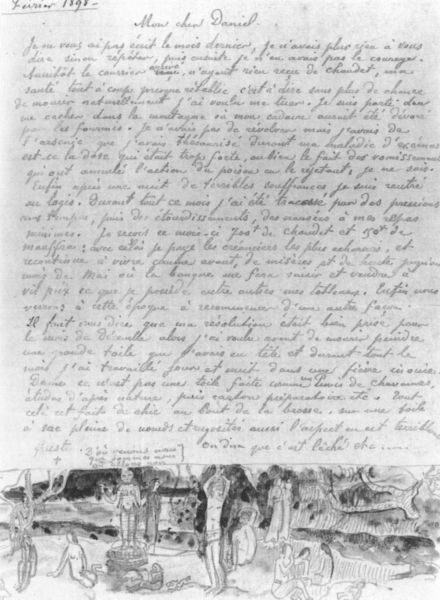 Février 1898 -
Mon cher Daniel.
Je ne vous ai pas écrit le mois dernier, je n'avais plus rien à vous
dire sinon répéter, puis ensuite je n'en avais pas le courage.
Aussitôt le courrier arrivé, n'ayant rien reçu de Chaudet, ma
santé tout à coup presque rétablie, c'est à dire sans plus de chance
de mourir naturellement j'ai voulu me tuer. Je suis parti
me cacher dans la montagne où mon cadavre aurait été dévoré
par les fourmis. Je n'avais pas de revolver mais j'avais de
l'arsenic que j'avais thésaurisé durant ma maladie d'eczéma
est-ce la dose qui était trop forte, ou bien le fait des vomissements
qui ont annulé l'action du poison en le rejetant, je ne sais.
Enfin après une nuit de terribles souffrances je suis rentré
au logis. Durant tout ce mois j'ai été tracassé par des pressions
aux tempes, puis des étourdissements, des nausées à mes repas
minimes. Je reçois ce mois-ci 700f de Chaudet et 150f de
Mauffra: avec cela je paye les créanciers les plus acharnés, et
recontinue à vivre comme avant de misères et de honte jusqu'au
mois de Mai où la banque me fera saisir et vendre à
vil prix ce que je possède entre autres mes tableaux. Enfin nous
verrons à cette époque à recommencer d'une autre façon.
Il faut vous dire que ma résolution était bien prise pour
le mois de décembre alors j'ai voulu avant de mourir peindre
une grande toile que j'avais en tête et durant tout le
mois j'ai travaillé jour et nuit dans une fièvre inouïe.
Dame ce n'est pas une toile faite comme un Puvis de Chavannes,
études d'après nature, puis carton préparatoire etc. Tout
cela est fait de chic au bout de la brosse, sur une toile
à sac pleine de noeuds et rugosités aussi l'aspect en est terriblement
fruste.
On dira que c'est lâché etc ....
D'où venons nous
que sommes nous
où allons nous